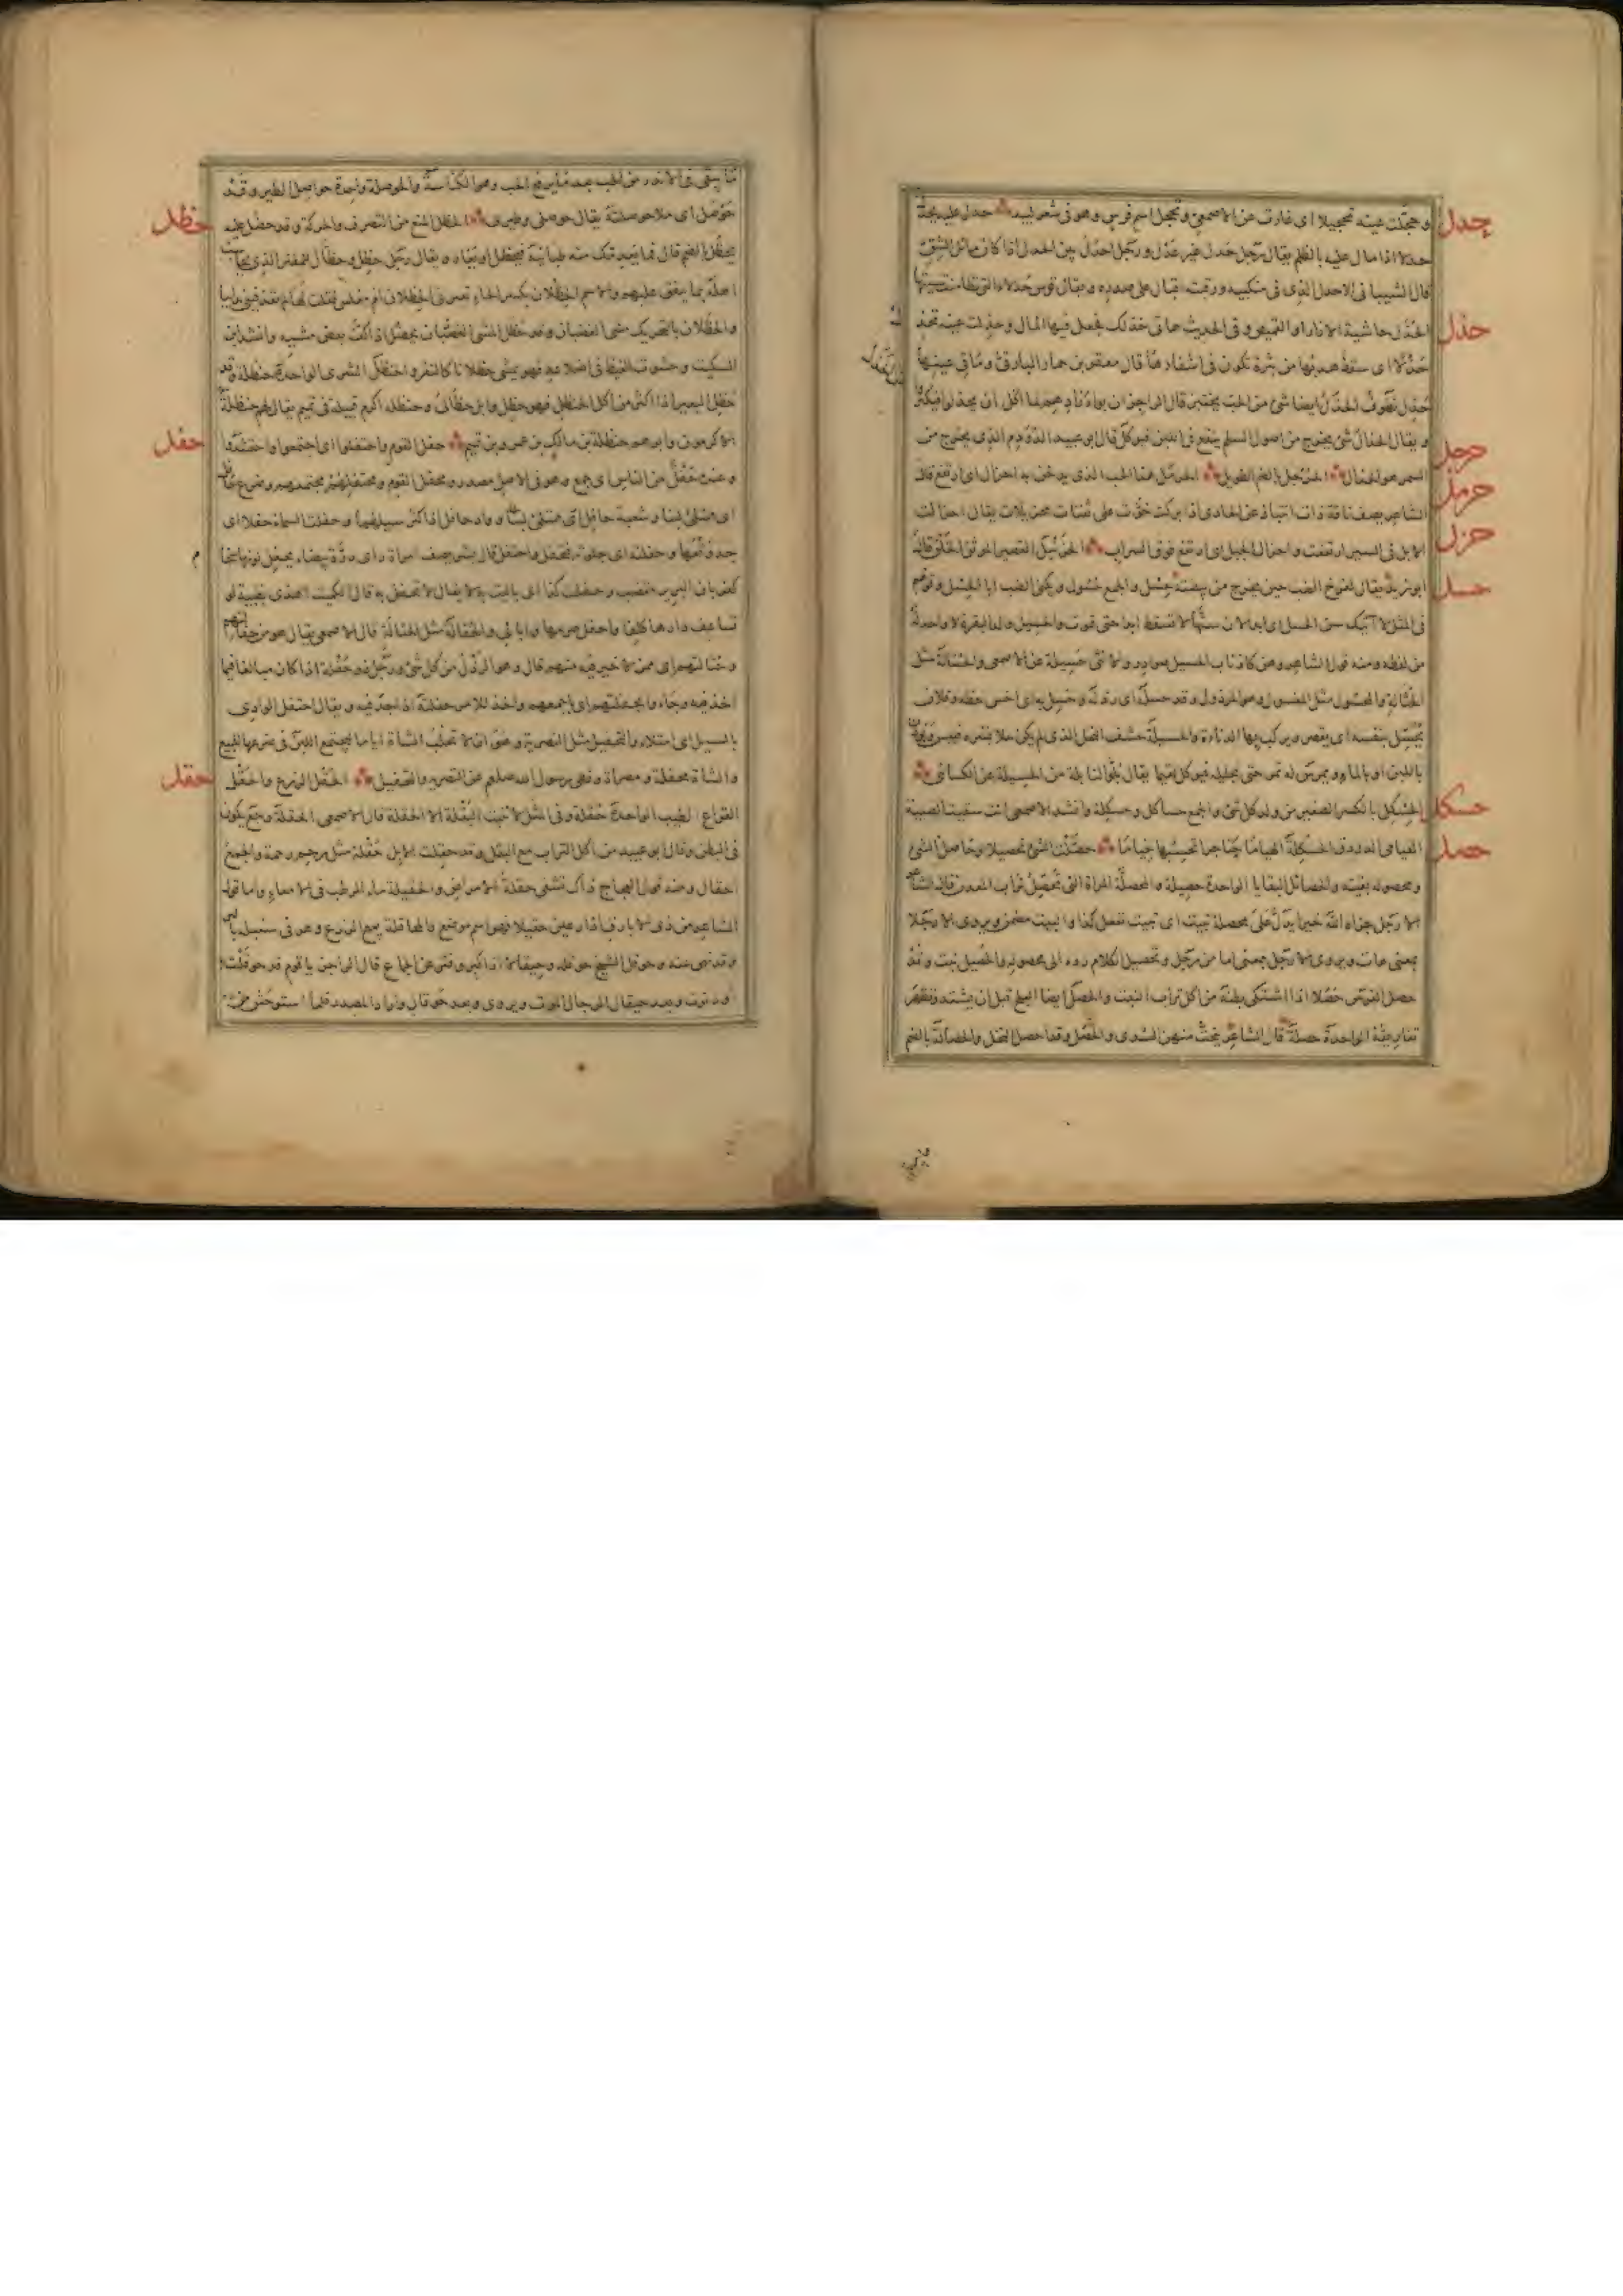 حدل
وحجلت عينه تحجيلا اى غارت عن الاصمعى وتحجل اسم فرس وهو فى شعر لبيد حدل عليه يحدل
حدلا اذا مال عليه بالظلم يقال رجل حدل غير عدل ورجل احدل بين الحدل اذا كان مائل الشق
قال الشيبانى الاحدل الذى فى منكبيه ورقبته اقبال على صدره ويقال قوس حدلاء للتى تطامنت سيتها
حذل
الحذل حاشية الازار او القميص وفى الحديث هاتى حذلك فجعل فيها المال وحذلت عينه تحذل
حذلا اى سقط هدبها من بثرة تكون فى اشفارها قال معقر بن حمار البارقى وماقى عينها
حذل نطوف
حرجل
السمر هو الحذال الحرجل بالضم الطويل الحرمل هذا الحب الذى يدخن به احزال اى ارتفع قال
حرمل
الشاعر يصف ناقة ذات انتباذ عن الحادى اذا بركت خوت على ثفنات محزئلات يقال احزالت
حزل
الابل فى السير ارتفعت واحزال الجبل اى ارتفع فوق السراب الحزنبل القصير الموثق الخلق قال
حسل
ابو زيد يقال لفرخ الضب حين يخرج من بيضته حسل والجمع حسول ويكنى الضب ابا الحسل وقولهم
فى المثل لا آتيك سن الحسل اى ابدا لان سنها لا تسقط ابدا حتى تموت والحسيل ولد البقرة لا واحد له
من لفظه ومنه قول الشاعر وهن كاذناب الحسيل صوادر والانثى حسيلة عن الاصمعى والحسالة مثل
الحثالة والمحسول مثل المخسول وهو المرذول وقد حسله اى رذله وحسل به اى اخس حظه وفلان
يحسل بنفسه اى يقصر ويركب بها الدناءة والحسيلة حشف النخل الذى لم يكن حلا بسره فييبس
باللبن او بالماء ويمرس له تمر حتى يحليه فيؤكل لقيما يقال بلوا لنا بلة من الحسيلة عن الكسائى
حسكل
الحسكل بالكسر الصغير من ولد كل شئ والجمع حساكل وحسكلة وانشد الاصمعى انت سقيت الصبية
حصل
العيامى الدردق الحسكلة الهياما خناجرا تحسبها خياما حصلت الشئ تحصيلا وحاصل الشئ
ومحصوله بقيته والحصائل البقايا الواحدة حصيلة والمحصلة المراة التى تحصل تراب المعدن قال الشاعر
الا رجل جزاه الله خيرا يدل على محصلة تبيت اى تبيت تفعل كذا والبيت مضمن ويروى الا رجلا
بمعنى هات ويروى الا رجل بمعنى اما من رجل وتحصيل الكلام رده الى محصوله والحصيل نبت وقد
حصل الفرس حصلا اذا اشتكى بطنه من اكل تراب النبت والحصل ايضا البلح قبل ان يشتد وتظهر
ثفاريقه الواحدة حصلة قال الشاعر ينحت منهن السدى والحصل وقد احصل النخل والحصالة بالضم
ما يبقى فى الاندر من الحب بعد ما يرفع الحب وهو الكناسة والحوصلة واحدة حواصل الطير وقد
حظل
حوصل اى ملأ حوصلته يقال حوصلى وطيرى الحظل المنع من التصرف والحركة وقد حظل عليه
يحظل بالضم قال فما يعدمك منه طبانية فيحظل او يغار ويقال رجل حظل وحظال للمقتر الذى يحاسب
اهله بما ينفق عليهم والاسم الحظلان بكسر الحاء تعيرنى الحظلان ام مغلس فقلت لها لم تقذفينى بدائيا
والحظلان بالتحريك مشى الغضبان وقد حظل المشى الغضبان يحظل اذا كف بعض مشيه وانشد ابن
السكيت وحشوت الغيظ فى اضلاعه فهو يمشى حظلانا كالنقر والحنظل الشرى الواحدة حنظلة وقد
حظل البعير اذا اكثر من اكل الحنظل فهو حظل وابل حظالى وحنظلة اكرم قبيلة فى تميم يقال لهم حنظلة
حفل
الاكرمون وابوهم حنظلة بن مالك بن عمرو بن تميم حفل القوم واحتفلوا اى اجتمعوا واحتشدوا
وعنده حفل من الناس اى جمع وهو فى الاصل مصدر ومحفل القوم ومحتفلهم مجتمعهم وضرع حافل
اى ممتلئ لبنا وشعبة حافل اى ممتلئ وواد حافل اذا كثر سيلهما وحفلت السماء حفلا اى
جد وقعها وحفلته اى جلوته فتحفل واحتفل قال بشر يصف امراة راى درة بيضاء يحفل لونها سخام
كغربان البرير مقصب وحفلت كذا اى باليت به يقال لا تحفل به قال الكميت اهذى بظبية لو
تساعف دارها كلفا واحفل صرمها وابالى والحفالة مثل الحثالة قال الاصمعى يقال هو من حفالتهم
وحثالتهم اى ممن لا خير فيه منهم قال وهو الرذل من كل شئ ورجل ذو حفلة اذا كان مبالغا فيما
اخذ فيه وجاءوا بحفلتهم اى باجمعهم واخذ للامر حفلته اذا جد فيه ويقال احتفل الوادى
بالسيل اى امتلاء والتحفيل مثل التصرية وهو ان لا تحلب الشاة اياما ليجتمع اللبن فى ضرعها للبيع
حقل
والشاة محفلة ومصراة ونهى رسول الله صلعم عن التصرية والتحفيل الحقل الزرع والحقل
القراح الطيب الواحدة حقلة وفى المثل لا تنبت البقلة الا الحقلة قال الاصمعى الحقلة وجع يكون
فى البطن وقال ابو عبيد من اكل التراب مع البقل وقد حقلت الابل حقلة مثل رحم رحمة والجمع
احقال ومنه قول العجاج ذاك ونشفى حقلة الامراض والحقيلة ماء الرطب فى الامعاء واما قول
الشاعر من ذى الابارق اذ رعين حقيلا فهو اسم موضع والمحاقلة بيع الزرع وهو فى سنبله بالبر
وقد نهى عنه وحوقل الشيخ حوقلة وحيقالا اذا كبر وفتر عن الجماع قال الراجز يا قوم قد حوقلت
او دنوت وبعد حيقال الرجال الموت ويروى وبعد حوقال واراد المصدر فلما استوحش من